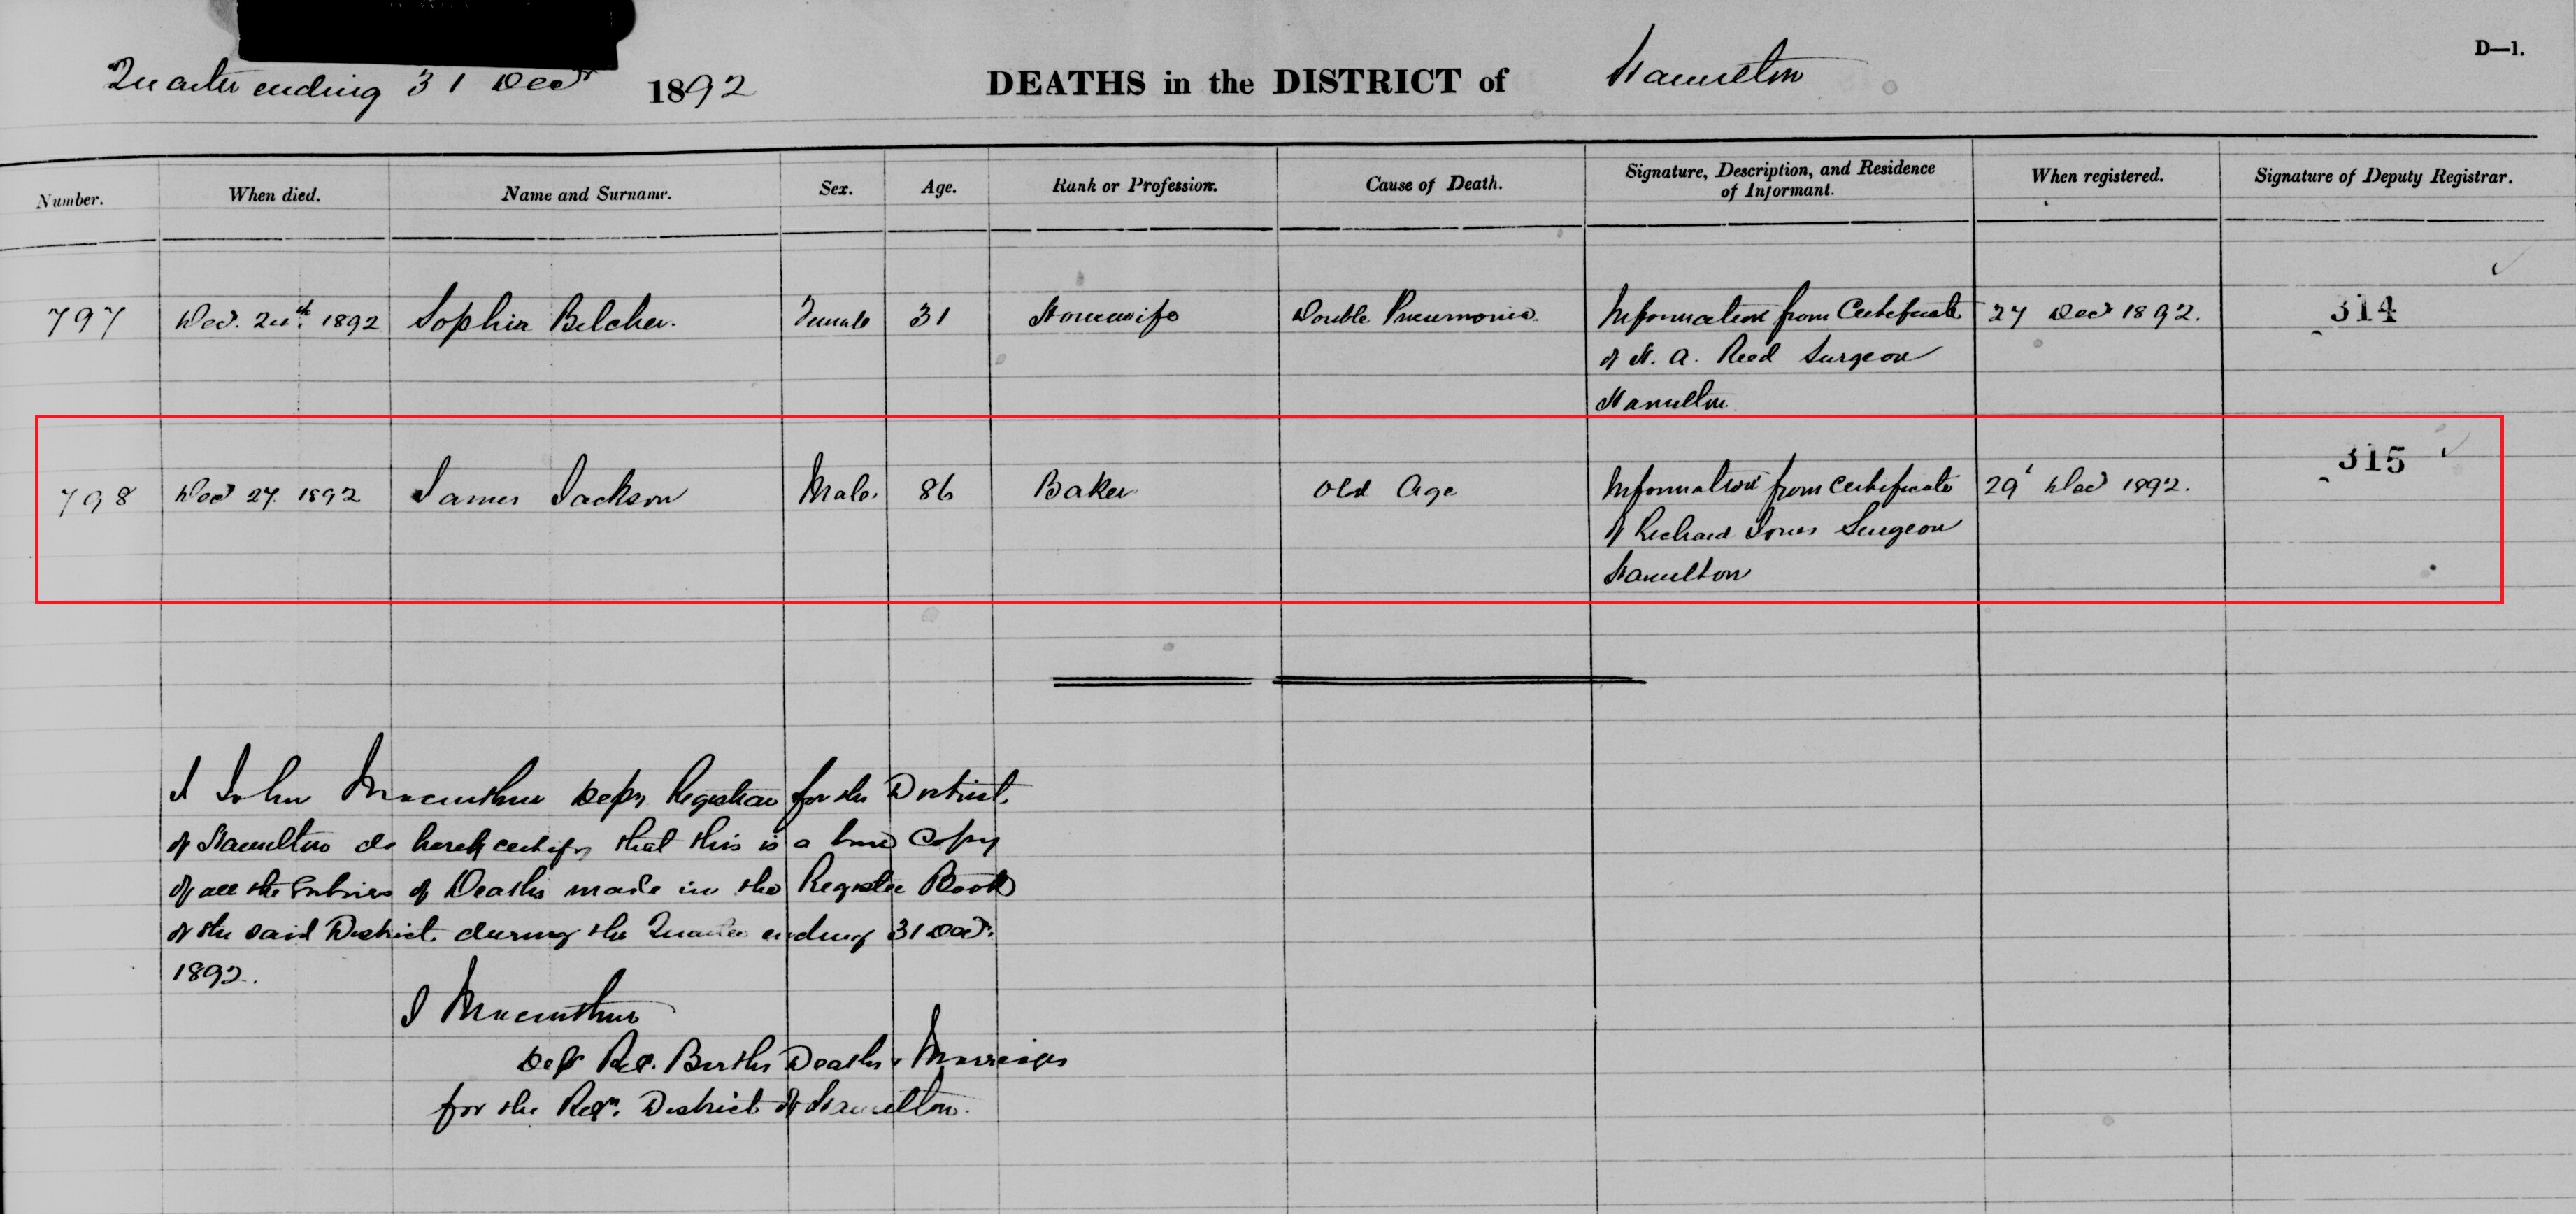 Quarter ending 31 Decr 1892 DEATHS in the DISTRICT of Hamilton D—1.
Number. When died. Name and Surname. Sex. Age. Rank or Profession. Cause of Death. Signature, Description, and Residence of Informant. When registered. Signature of Deputy Registrar.
797 Decr. 1892 Sophia Belcher. Female 31 Housewife Double Pneumonia. Information from Certificate 27 Decr 1892. 314
of H. A. Reed Surgeon
Hamilton
798 Decr 27. 1892 James Jackson Male. 86 Baker Old Age Information from Certificate 29' Decr 1892. 315
of Richard Jones Surgeon
Hamilton
I John Macarthur Depy Registrar for the District
of Hamilton do hereby certify that this is a true copy
of all the Entries of Deaths made in the Register Book
of the said District during the Quarter ending 31 Decr.
1892.
J Macarthur
Dep Reg. Births Deaths & Marriages
for the Regn. District of Hamilton.